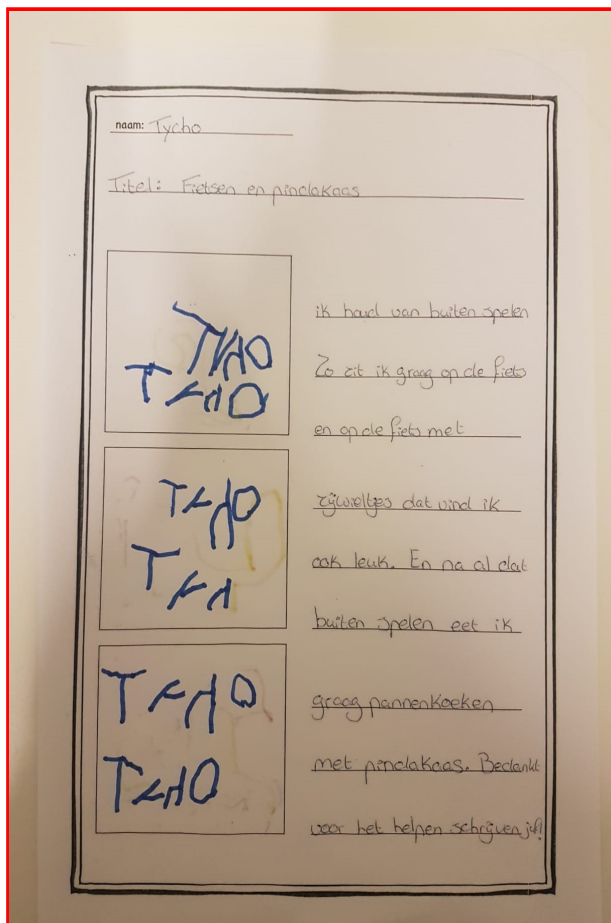 naam: Tycho
Titel: Fietsen en pindakaas
TYCHO
TYCHO
ik houd van buiten spelen
Zo zit ik graag op de fiets
en op de fiets met
TYCHO
TYCH
zijwieltjes dat vind ik
ook leuk. En na al dat
buiten spelen eet ik
TYCHO
TYCHO
graag pannenkoeken
met pindakaas. Bedankt
voor het helpen schrijven juf!